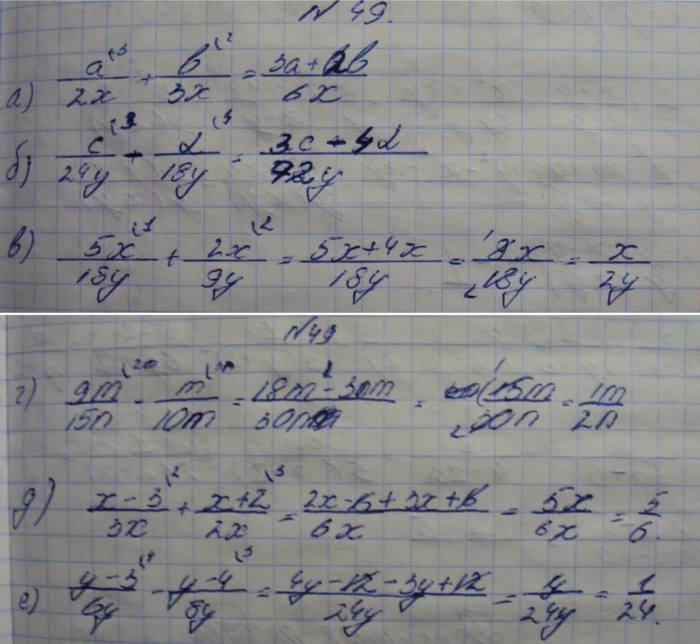 № 49.
а) a⁽³/2x + b⁽²/3x = 3a+2b/6x
б) c⁽³/24y - d⁽⁴/18y = 3c-4d/72y
в) 5x⁽¹/18y + 2x⁽²/9y = 5x+4x/18y = 9x/18y = x/2y
№49
г) 9m/15n - m/10n = 18m-3m/30n = 15m/30n = 1m/2n
д) x-3⁽²/3x + x+2⁽³/2x = 2x-6+3x+6/6x = 5x/6x = 5/6.
е) y-3⁽⁴/6y - y-4⁽³/8y = 4y-12-3y+12/24y = y/24y = 1/24.